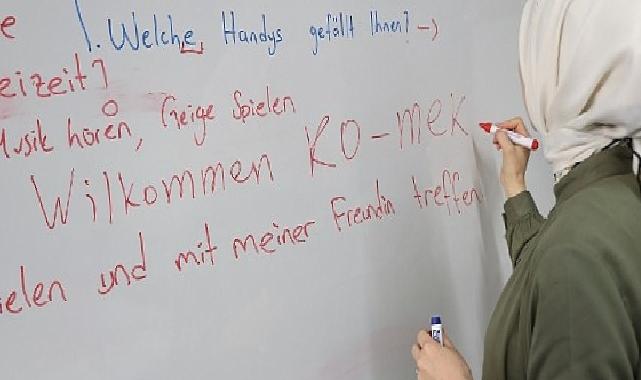 e
1. Welche Handys gefällt Ihnen? →
eizeit?
Musik hören, Geige Spielen
Wilkommen KO-mek
ielen und mit meiner Freundin treffen